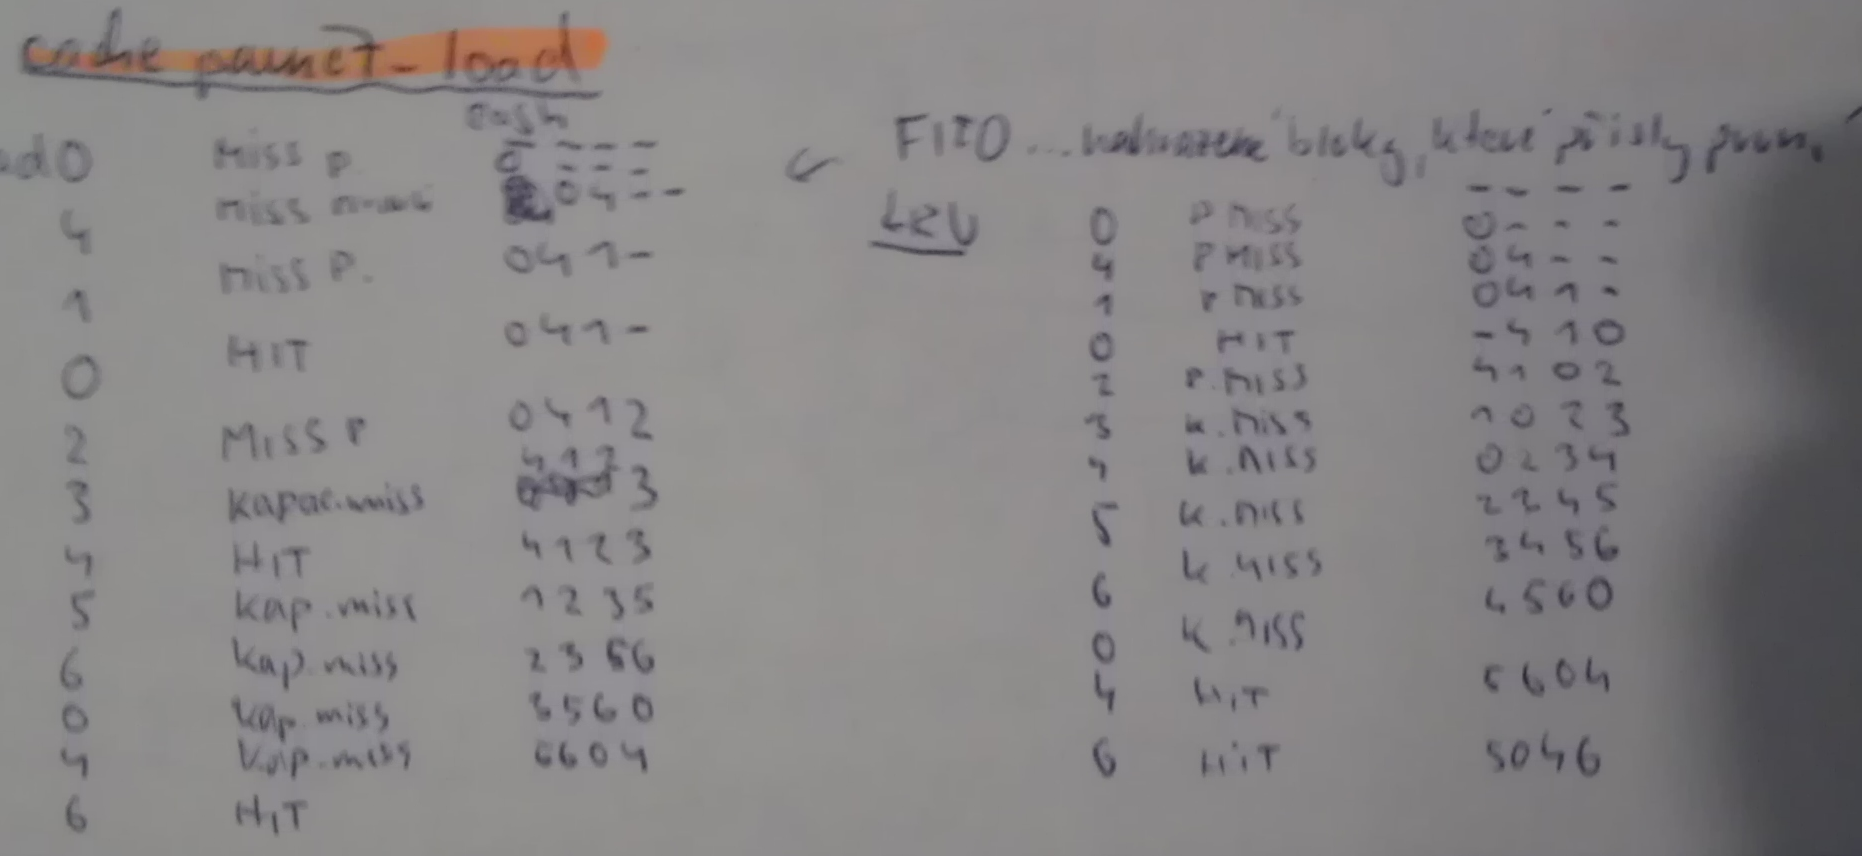 cache paměť - load
cash
- - - -
ad 0 Miss P. 0 - - -
4 miss 0 4 - -
1 miss P. 0 4 1 -
0 HIT 0 4 1 -
2 MISS P 0 4 1 2
3 kapac. miss 4 1 2 3
4 HIT 4 1 2 3
5 kap. miss 1 2 3 5
6 kap. miss 2 3 5 6
0 kap. miss 3 5 6 0
4 kap. miss 5 6 0 4
6 HIT
FIFO ... bloky, které přišly
LRU
- - - -
0 P MISS 0 - - -
4 P MISS 0 4 - -
1 P MISS 0 4 1 -
0 HIT - 4 1 0
2 P. MISS 4 1 0 2
3 k. MISS 1 0 2 3
4 k. MISS 0 2 3 4
5 k. MISS 2 3 4 5
6 k MISS 3 4 5 6
0 k. MISS 4 5 6 0
4 HIT 5 6 0 4
6 HIT 5 0 4 6